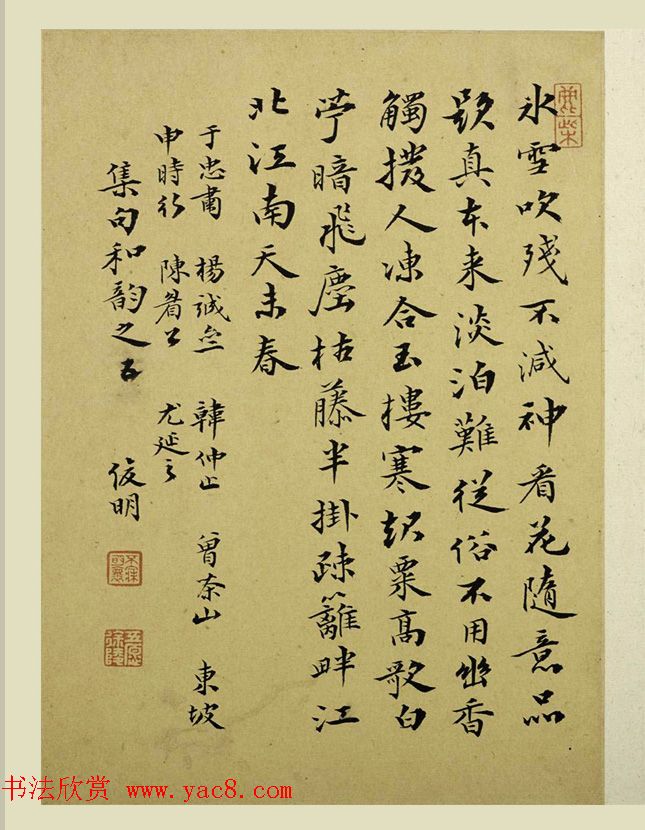 鹿柴
氷雪吹殘不減神看花隨意品
題真本来淡泊難從俗不用幽香
觸撥人凍合玉摟寒起粟高歌白
苧暗飛塵枯藤半掛疎籬畔江
北江南天未春
于忠肅 楊誠斋 韓仲止 曾茶山 東坡
申時行 陳眉公 尤延之
集句和韻之五 俊明
书法欣赏 www.yac8.com